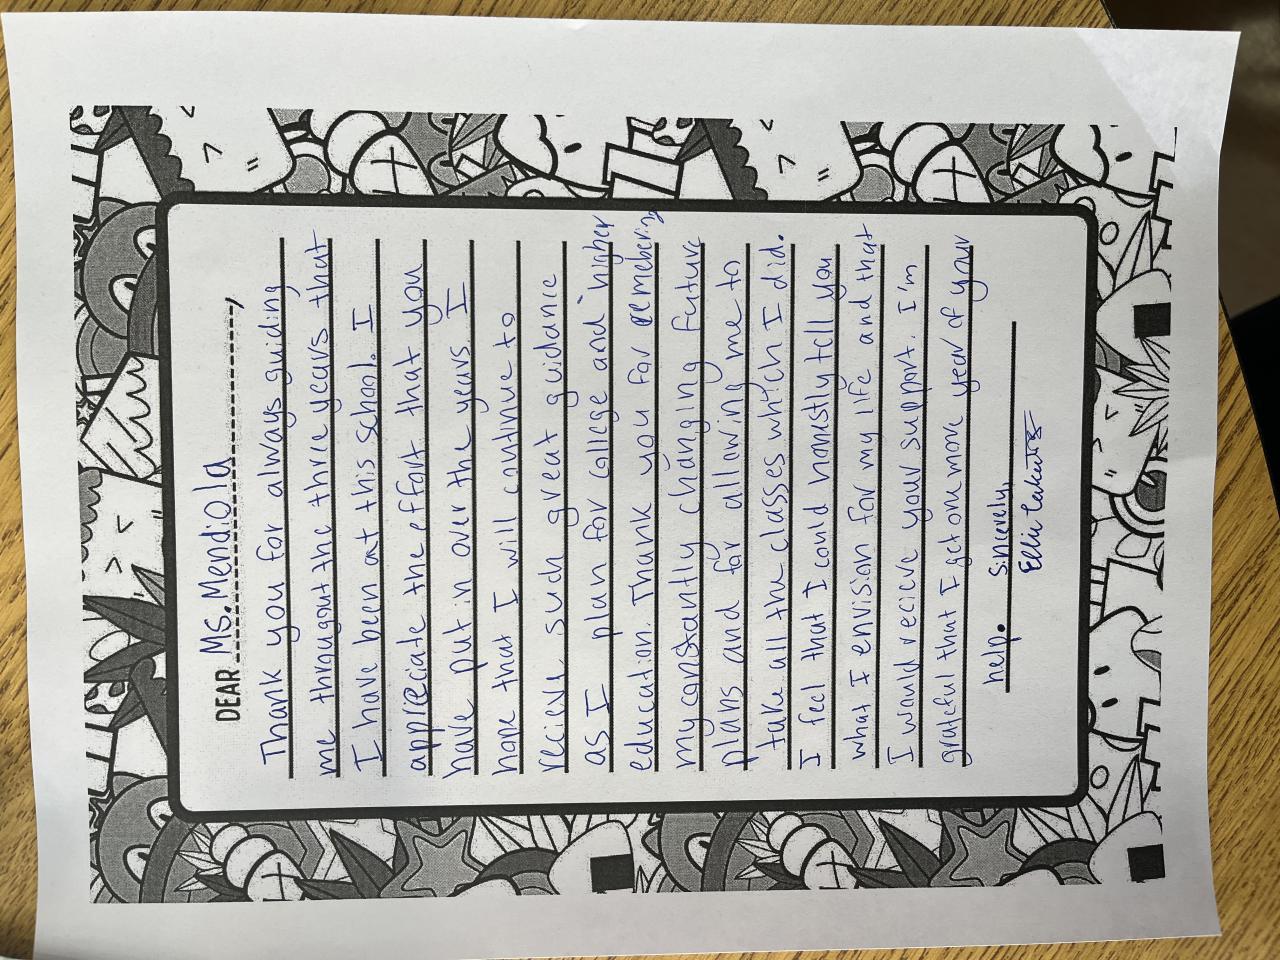 DEAR Ms. Mendiola,
Thank you for always guiding
me througout the three years that
I have been at this school. I
appreciate the effort that you
have put in over the years I
hope that I will continue to
recieve such great guidance
as I plan for college and higher
education. Thank you for remebering
my constantly changing future
plans and for allowing me to
take all the classes which I did.
I feel that I could honestly tell you
what I envision for my life and that
I would recieve your support. I'm
grateful that I get one more year of your
help.
Sincerely,
Ellie